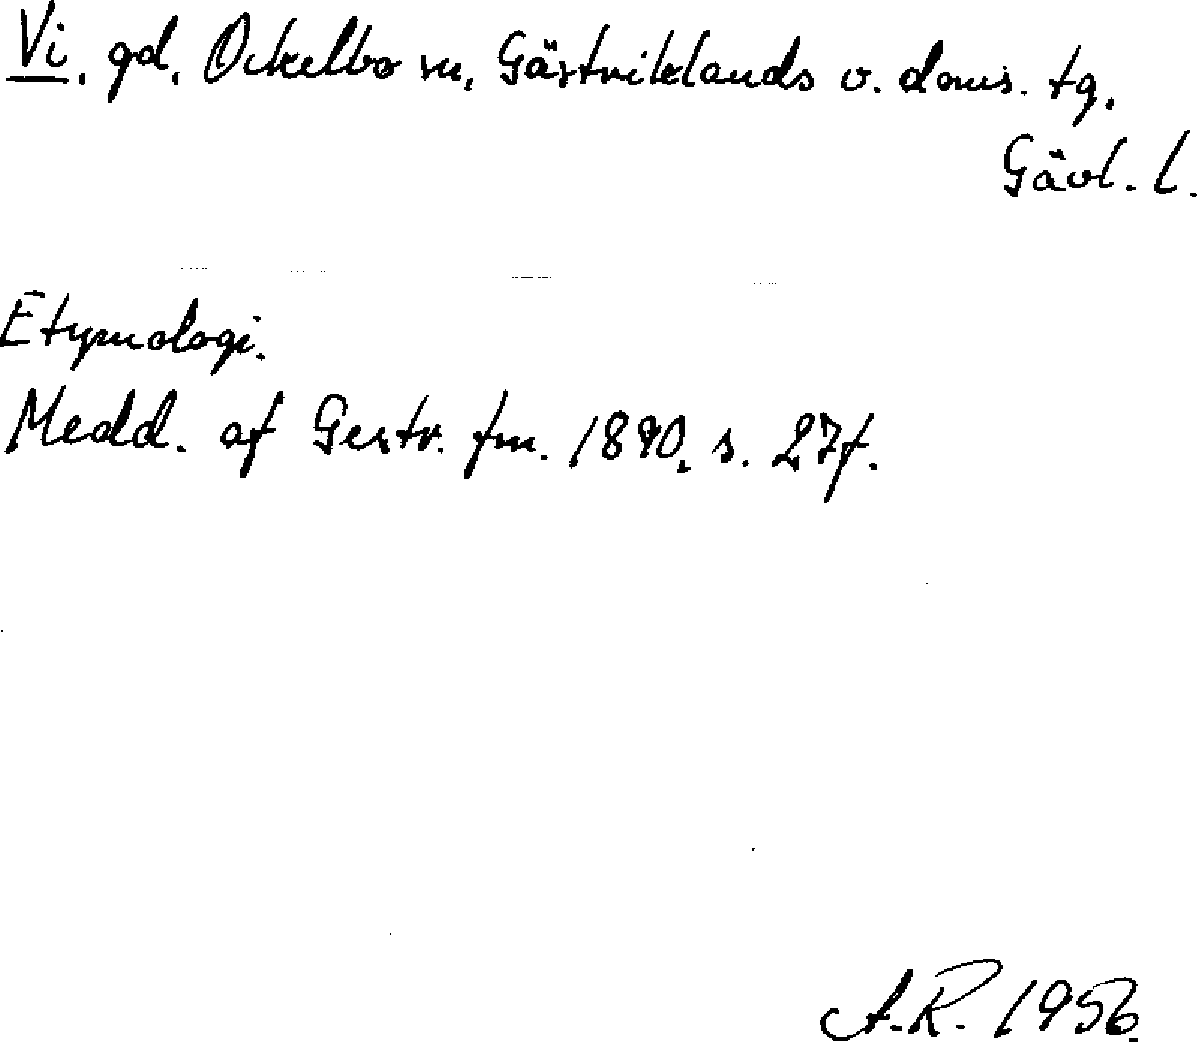 Vi. gd. Ockelbo sn, Gästriklands v. doms. tg.
Gävl. l.
Etymologi.
Medd. af Gestr. fm. 1890. s. 27f.
A.R. 1956.